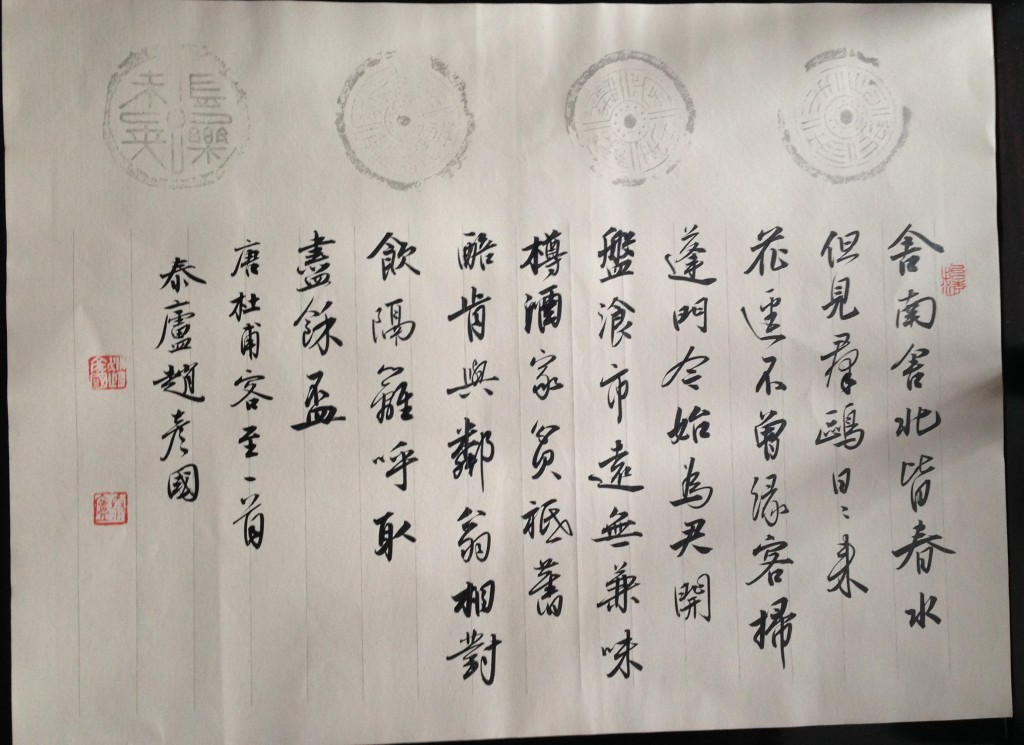 長樂未央
舍南舍北皆春水
但見羣鷗日〻来
花逕不曾緣客掃
蓬門今始為君開
盤湌市遠無兼味
樽酒家貧祗舊
醅肯與鄰翁相對
飲隔籬呼取
盡餘盃
唐杜甫客至一首
泰廬趙彥國